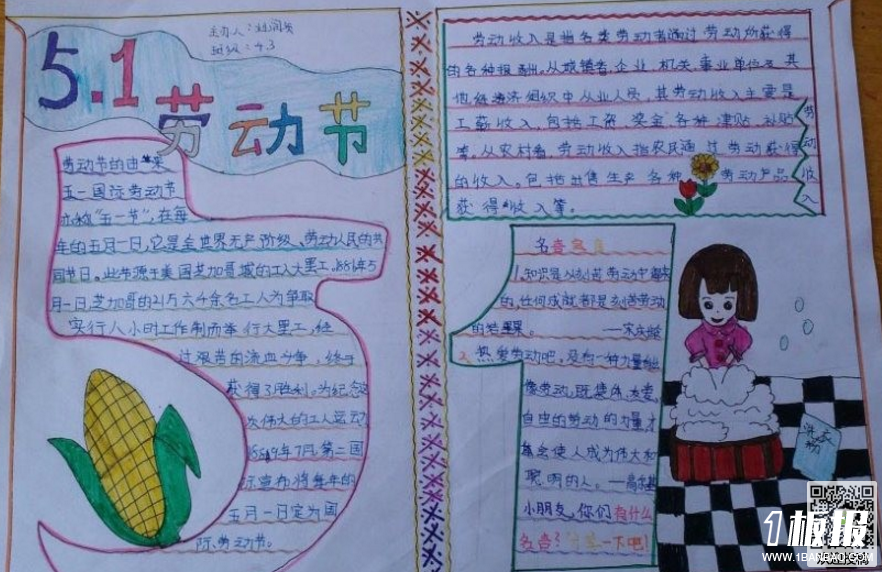 主办人：
班级：4.3
5.1
劳动节
劳动节的由来
五一国际劳动节
亦称"五一节"，在每
年的五月一日。它是全世界无产阶级、劳动人民的共
同节日。此节源于美国芝加哥城的工人大罢工。1886年5
月一日芝加哥的21万六千余名工人为争取
实行八小时工作制而举行大罢工，经
过艰苦的流血斗争，终于
获得了胜利。为纪念这
次伟大的工人运动
1889年7月，第二国
际宣布将每年的
五月一日定为国
际劳动节。
劳动收入是指各类劳动者通过劳动所获得
的各种报酬。从城镇看，企业、机关、事业单位及其
他经济组织中从业人员，其劳动收入主要是
工薪收入，包括工资、奖金、各种津贴、补贴
等，从农村看，劳动收入指农民通过劳动获得
的收入。包括出售生产各种劳动产品
获得收入等。
劳动收入
名言
1.知识是从刻苦劳动中得来
的，任何成就都是刻苦劳动
的结果。——宋庆龄
2.热爱劳动吧。没有一种力量能
像劳动，既集体、友爱、
自由的劳动的力量才
能使人成为伟大和
聪明的人。——高尔基
小朋友，你们有什么
名言？一下吧！
洗衣粉
1板报
WWW.1BANBAO.COM
欢迎投稿